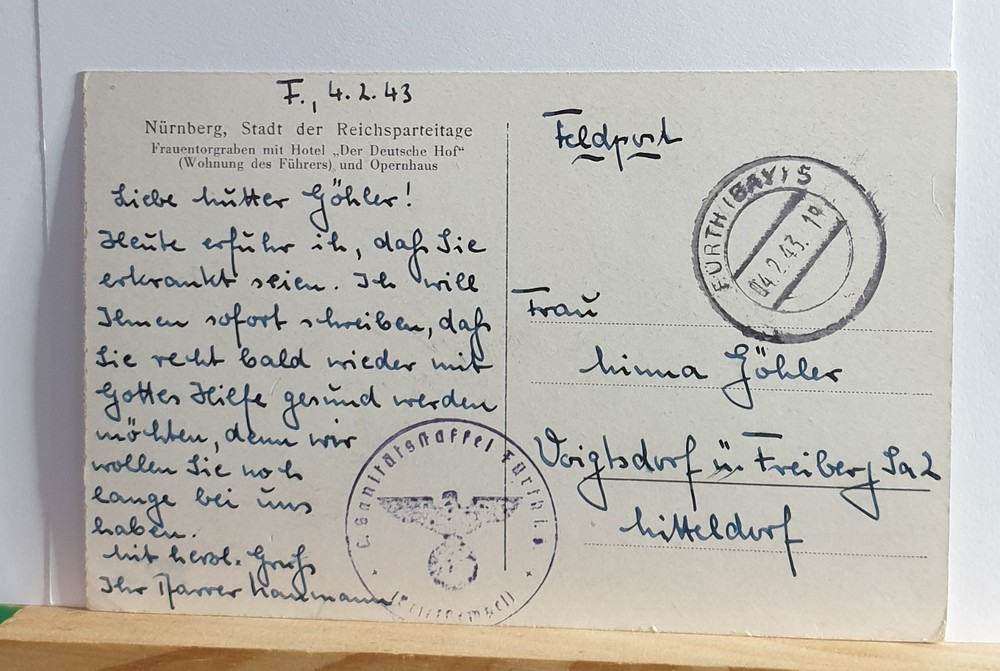 F., 4.2.43
Nürnberg, Stadt der Reichsparteitage
Frauentorgraben mit Hotel „Der Deutsche Hof“
(Wohnung des Führers) und Opernhaus
Liebe Mutter Göhler!
Heute erfuhr ich, daß Sie
erkrankt seien. Ich will
Ihnen sofort schreiben, daß
Sie recht bald wieder mit
Gottes Hilfe gesund werden
möchten, denn wir
wollen Sie noch
lange bei uns
haben.
Mit herzl. Gruß
Ihr Pfarrer Naumann
Feldpost
FÜRTH (BAY) 5
04.2.43. 18
Frau
Minna Göhler
Voigtsdorf ü. Freiberg Sa 2
Mitteldorf
Sanitätsstaffel Fürth i. B.
(Briefstempel)